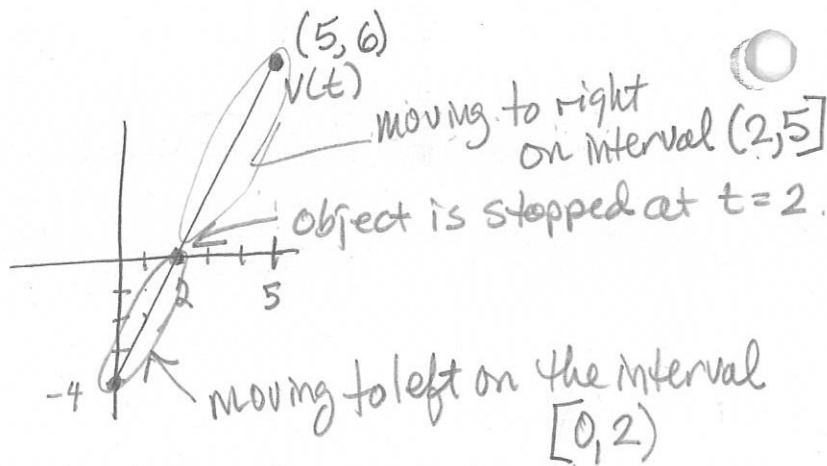 (5,6)
v(t)
moving to right
on interval (2,5]
object is stopped at t=2.
2
5
-4
moving to left on the interval
[0,2)